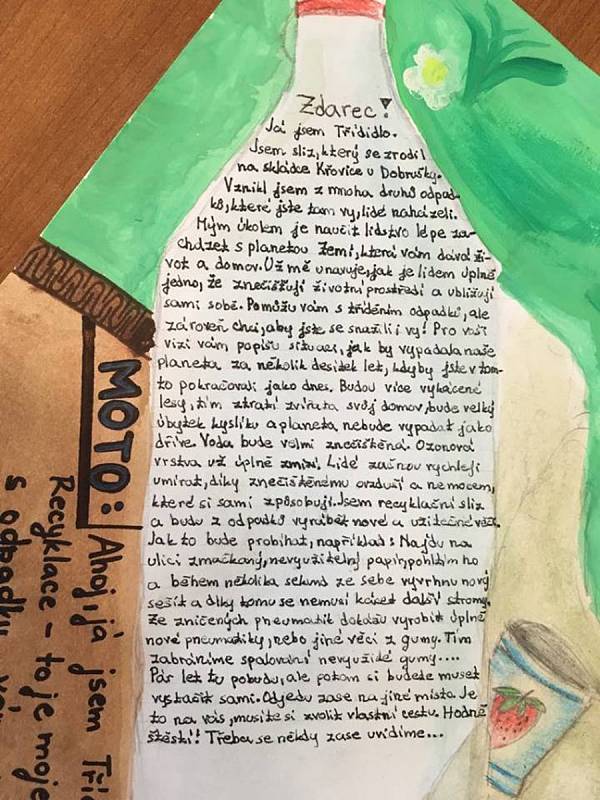 Zdarec!
Já jsem Třídidlo.
Jsem sliz, který se zrodil
na skládce Křovice u Dobrušky.
Vznikl jsem z mnoha druhů odpad-
ků, které jste tam vy, lidé naházeli.
Mým úkolem je naučit lidstvo lépe za-
cházet s planetou Zemí, která vám dává ži-
vot a domov. Už mě unavuje, jak je lidem úplně
jedno, že znečišťují životní prostředí a ubližují
sami sobě. Pomůžu vám s tříděním odpadků, ale
zároveň chci, aby jste se snažili i vy! Pro vaši
vizi vám popíšu situaci, jak by vypadala naše
planeta za několik desítek let, kdyby jste v tom-
to pokračovali jako dnes. Budou více vykácené
lesy, tím ztratí zvířata svůj domov, bude velký
úbytek kyslíku a planeta nebude vypadat jako
dříve. Voda bude velmi znečištěná. Ozonová
vrstva už úplně zmizí. Lidé začnou rychleji
umírat, díky znečištěnému ovzduší a nemocem,
které si sami způsobují. Jsem recyklační sliz
a budu z odpadků vyrábět nové a užitečné věci.
Jak to bude probíhat, například: Najdu na
ulici zmačkaný, nevyužitelný papír, pohltím ho
a během několika sekund ze sebe vyvrhnu nový
sešit a díky tomu se nemusí kácet další stromy.
Ze zničených pneumatik dokážu vyrobit úplně
nové pneumatiky, nebo jiné věci z gumy. Tím
zabráníme spalování nevyužité gumy....
Pár let tu pobudu, ale potom si budete muset
vystačit sami. Odjedu zase na jiné místa. Je
to na vás, musíte si zvolit vlastní cestu. Hodně
štěstí! Třeba se někdy zase uvidíme...
MOTO:
Ahoj, já jsem Tří
Recyklace - to je moje
s odpadky